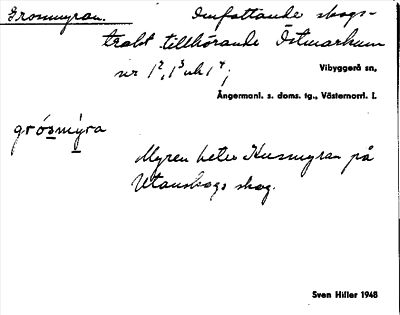 Grossmyran. Omfattande skogs-
trakt tillhörande Östmarkum
nr 1², 1³ och 1⁴;
Vibyggerå sn,
Ångermanl. s. doms. tg., Västernorrl. l.
gró̱smỳ̱ra
Myren heter Husmyran på
Utanskogs skog.
Sven Hiller 1948